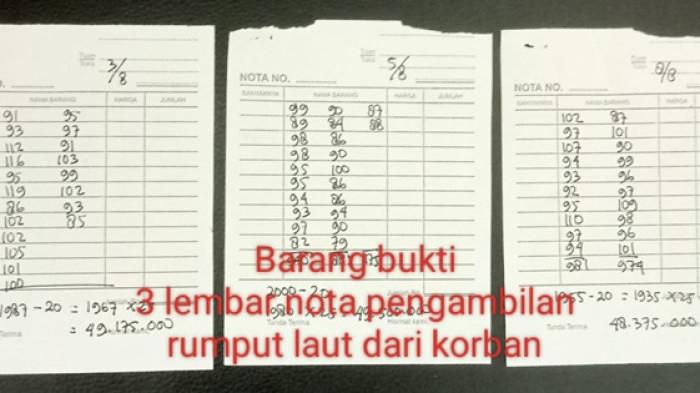 Tuan
Toko
3/8
NAMA BARANG HARGA JUMLAH
91 95
93 97
112 91
116 103
95 99
119 102
86 93
102 85
102
105
101
100
1987 - 20 = 1967 x 25
= 49.175.000
Tanda Terima
Tuan
Toko
5/8
NOTA NO.
BANYAKNYA NAMA BARANG HARGA JUMLAH
99 90 87
89 84 88
98 86
98 90
95 100
95 86
94 86
93 94
97 90
82 79
2000 - 20
1980 x 25 = 49.500.000
Tanda Terima Hormat kami,
NOTA NO.
BANYAKNYA NAMA BARANG HARGA JUMLAH
102 87
97 101
107 90
94 99
93 96
92 97
95 109
110 98
97 96
94 101
981 974
1955 - 20 = 1935 x 25
48.375.000
Tanda Terima
Barang bukti
3 lembar nota pengambilan
rumput laut dari korban